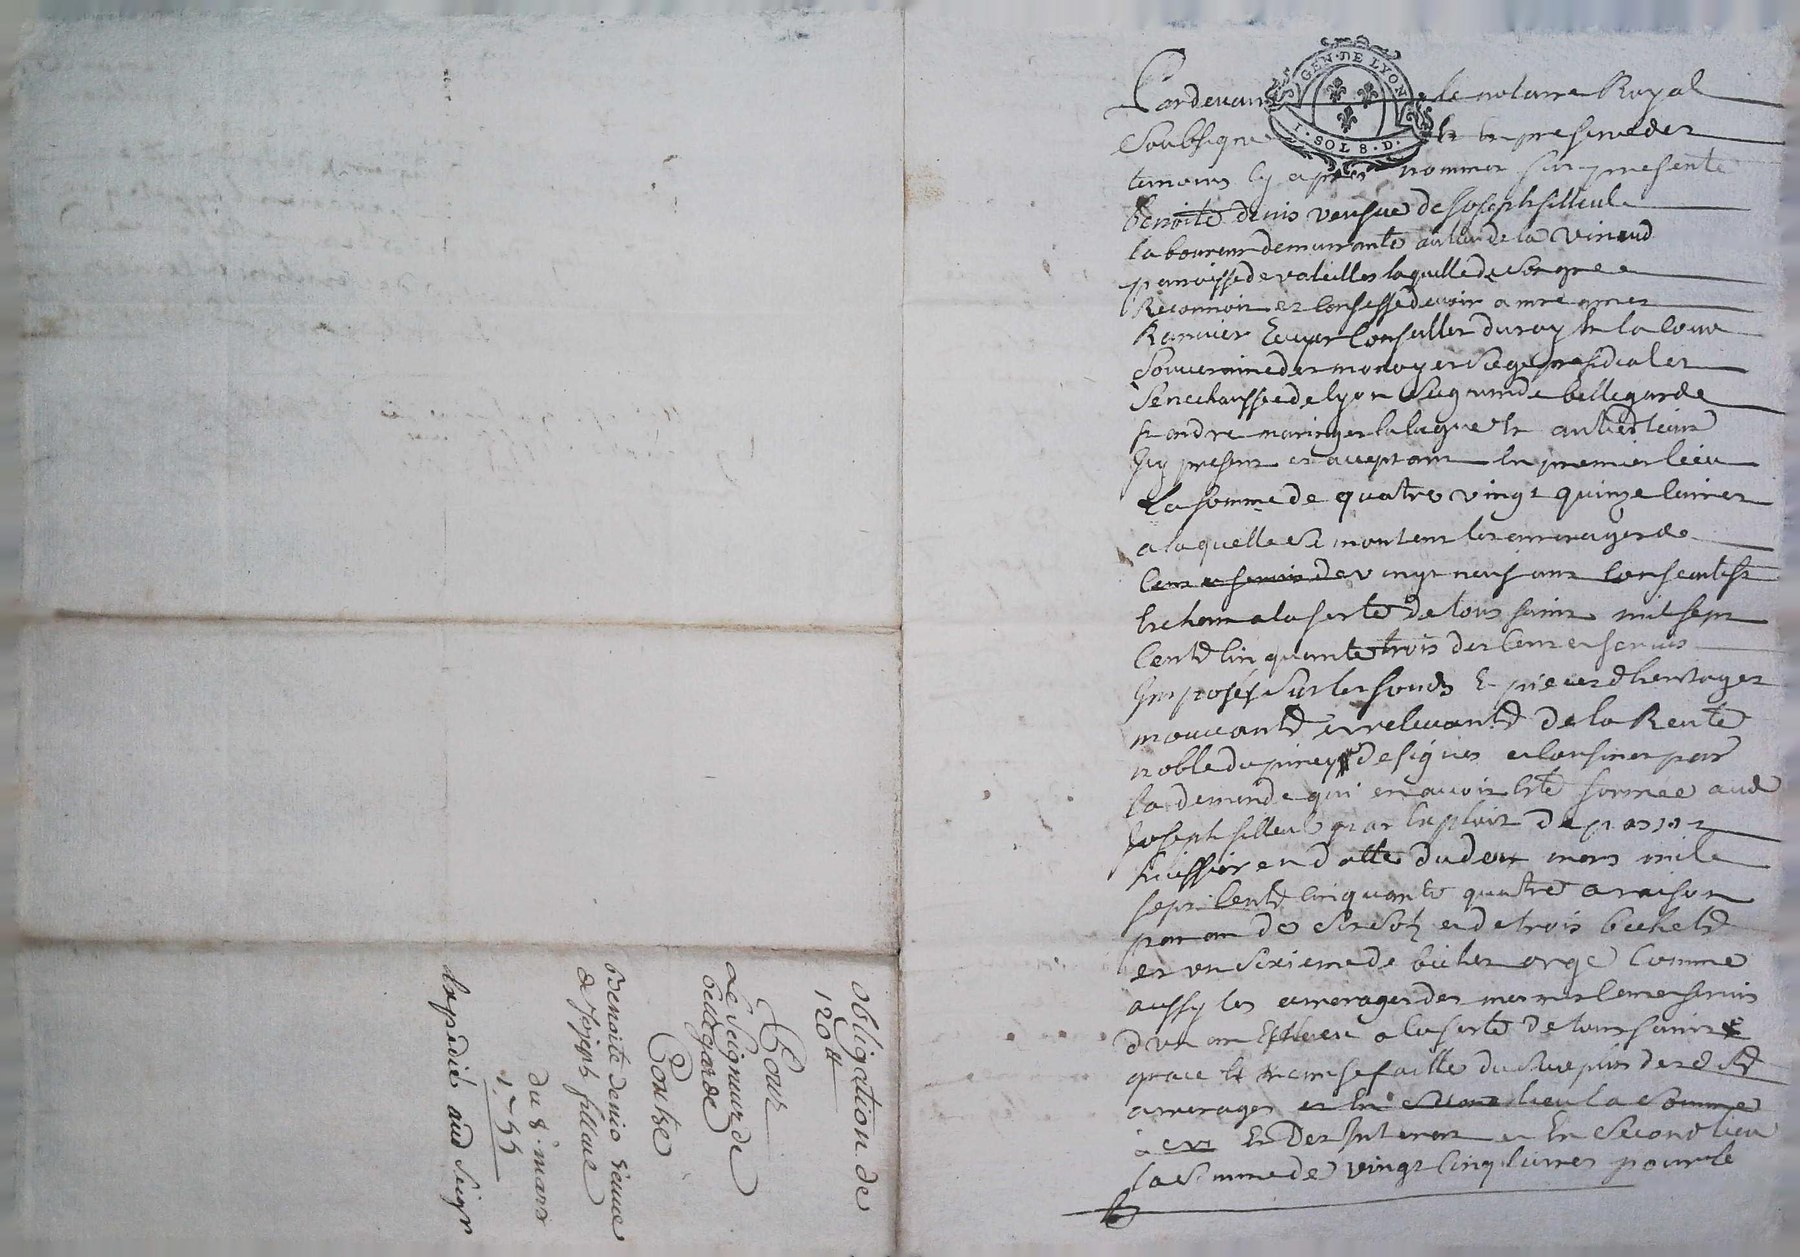 Pardevant le notaire Royal
Soubsigné Et En presence des
temoins cy apres nommes fut presente
benoite denis veufve de Joseph filleul
laboureur demeurante au lieu de la
paroisse de valeilles laquelle de son gre
Reconnoit et Confesse devoir a mre
Ranvier Ecuyer Conseiller du roy En la Cour
Souveraine des monoyes Siege presidial et
Senechaussée de lyon Seigneur de bellegarde
St andre Et autres lieux
Icy present et acceptant En premier lieu
La somme de quatre vingt quinze livres
a laquelle se montent les arrerages de
Cens et servis de vingt neuf ans Consecutifs
Echeus a la feste de tous saints mil sept
Cent Cinquante trois des Cens et servis
Imposés Sur les fonds E pieces d'heritages
mouvants et relevants de la Rente
noble du piney designés et Confinés par
la demande qui en avoit Eté formée aud
Joseph filleul par Exploit de
huissier en datte du deux mars mile
sept Cents Cinquante quatre a raison
par an de Six Sols et de trois bichets
et un Sixieme de bichet orge Comme
aussy les arrerages des mesmes Cens et servis
d'un an Escheu a la feste de toussaints
grace Et remise faitte du Surplus desdits
arrerages et En Second lieu la Somme
Et Des Interets et En Second lieu
la Somme de vingt Cinq livres pour le
GEN·DE LYON
1·SOL 8·D·
obligation de
120 ₶
Pour
Le Seigneur de
bellegarde
Contre
Benoite denis veuve
de Joseph filleul
du 8. mars
1755
Expédié aud Seigr